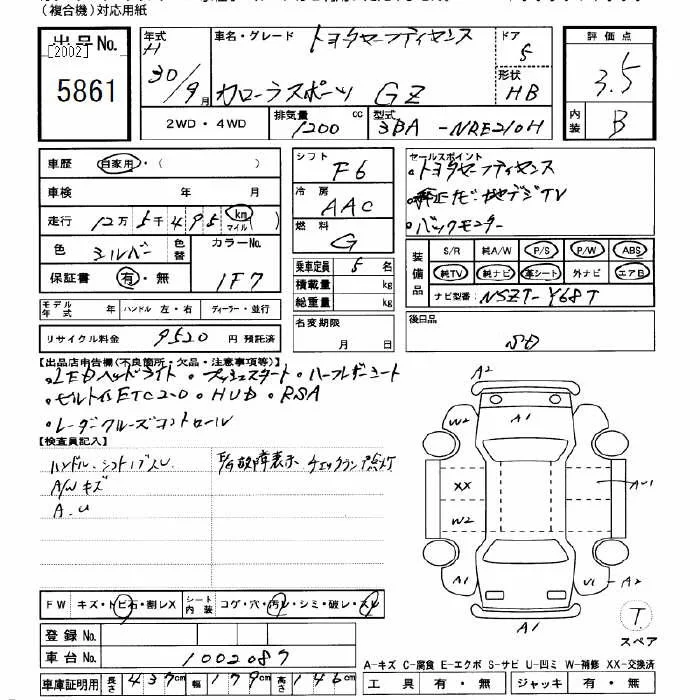 (複合機)対応用紙
出品No. [2002] 5861
年式 H 30/9月
車名・グレード トヨタセーフティセンス カローラスポーツ GZ
ドア 5
形状 HB
評価点 3.5
内装 B
2WD・4WD
排気量 1200 cc
型式 3BA-NRE210H
車歴 自家用・( )
車検 年 月
走行 12万5千495 km マイル ( )
色 シルバー 色替
カラーNo. 1F7
保証書 有・無
シフト F6
冷房 AAC
燃料 G
乗車定員 5名
積載量 kg
総重量 kg
セールスポイント
・トヨタセーフティセンス
・純正ナビ・地デジTV
・バックモニター
装備品 S/R 純A/W P/S P/W ABS
純TV 純ナビ 革シート 外ナビ エアB
ナビ型番 NSZT-Y68T
モデル年式 年 ハンドル 左・右 ディーラー・並行
リサイクル料金 9520 円 預託済
名変期限 月 日
後日品
【出品店申告欄(不良箇所・欠品・注意事項等)】
・LEDヘッドライト ・プッシュスタート ・ハーフレザーシート
・ビルトインETC2.0 ・HUD ・RSA
・レーダークルーズコントロール
【検査員記入】
ハンドル、シフトノブスレ
A/Wキズ
A.U
故障表示 チェックランプ点灯
A2
W2 A1
XX AU1
W2
A1 U1-A2
A1
T
スペア
FW キズ・トビ石・割レX
シート内装 コゲ・穴・汚レ・シミ・破レ・スレ
登録No.
車台No. 1002087
A-キズ C-腐食 E-エクボ S-サビ U-凹ミ W-補修 XX-交換済
車庫証明用 長さ 437cm 幅 179cm 高さ 146cm
工具 有・無 ジャッキ 有・無